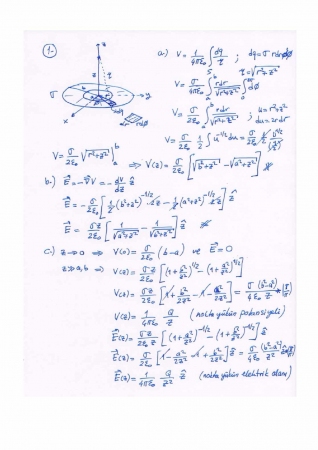 1-
z
σ
y
x
a
b
r
dq
dr
rdø
a) V = 1/4πε₀ ∫ dq/r ; dq = σ rdrdø
r = √r²+z²
V = σ/4πε₀ ∫ₐᵇ rdr/√r²+z² ∫₀²π dø
V = σ/2ε₀ ∫ₐᵇ rdr/√r²+z² ; u = r²+z² du = 2rdr
V = σ/2ε₀ 1/2 ∫ u^-1/2 du = σ/2ε₀ 1/2 u^1/2 / 1/2
V = σ/2ε₀ √r²+z² |ₐᵇ ⇒ V(z) = σ/2ε₀ [√b²+z² − √a²+z²]
b) E = −∇V = − dV/dz ẑ
E = − σ/2ε₀ [1/2 (b²+z²)^-1/2 2z − 1/2 (a²+z²)^-1/2 2z] ẑ
E = σz/2ε₀ [1/√a²+z² − 1/√b²+z²] ẑ
c) z→0 ⇒ V(0) = σ/2ε₀ (b−a) ve E = 0
z≫a,b ⇒ V(z) = σz/2ε₀ [(1+b²/z²)^1/2 − (1+a²/z²)^1/2]
V(z) = σz/2ε₀ [1 + b²/2z² − 1 − a²/2z²] = σ/4ε₀ (b²−a²)/z
V(z) = 1/4πε₀ Q/z (nokta yükün potansiyeli)
E(z) = σz/2ε₀z [(1+a²/z²)^-1/2 − (1+b²/z²)^-1/2] ẑ
E(z) = σ/2ε₀ [1 − a²/2z² − 1 + b²/2z²] ẑ = σ/4ε₀ (b²−a²)/z² ẑ
E(z) = 1/4πε₀ Q/z² ẑ (nokta yükün elektrik alanı)